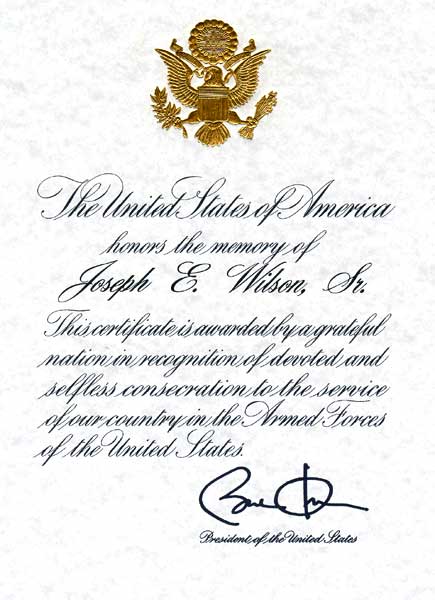 The United States of America
honors the memory of
Joseph E. Wilson, Sr.
This certificate is awarded by a grateful
nation in recognition of devoted and
selfless consecration to the service
of our country in the Armed Forces
of the United States.
President of the United States